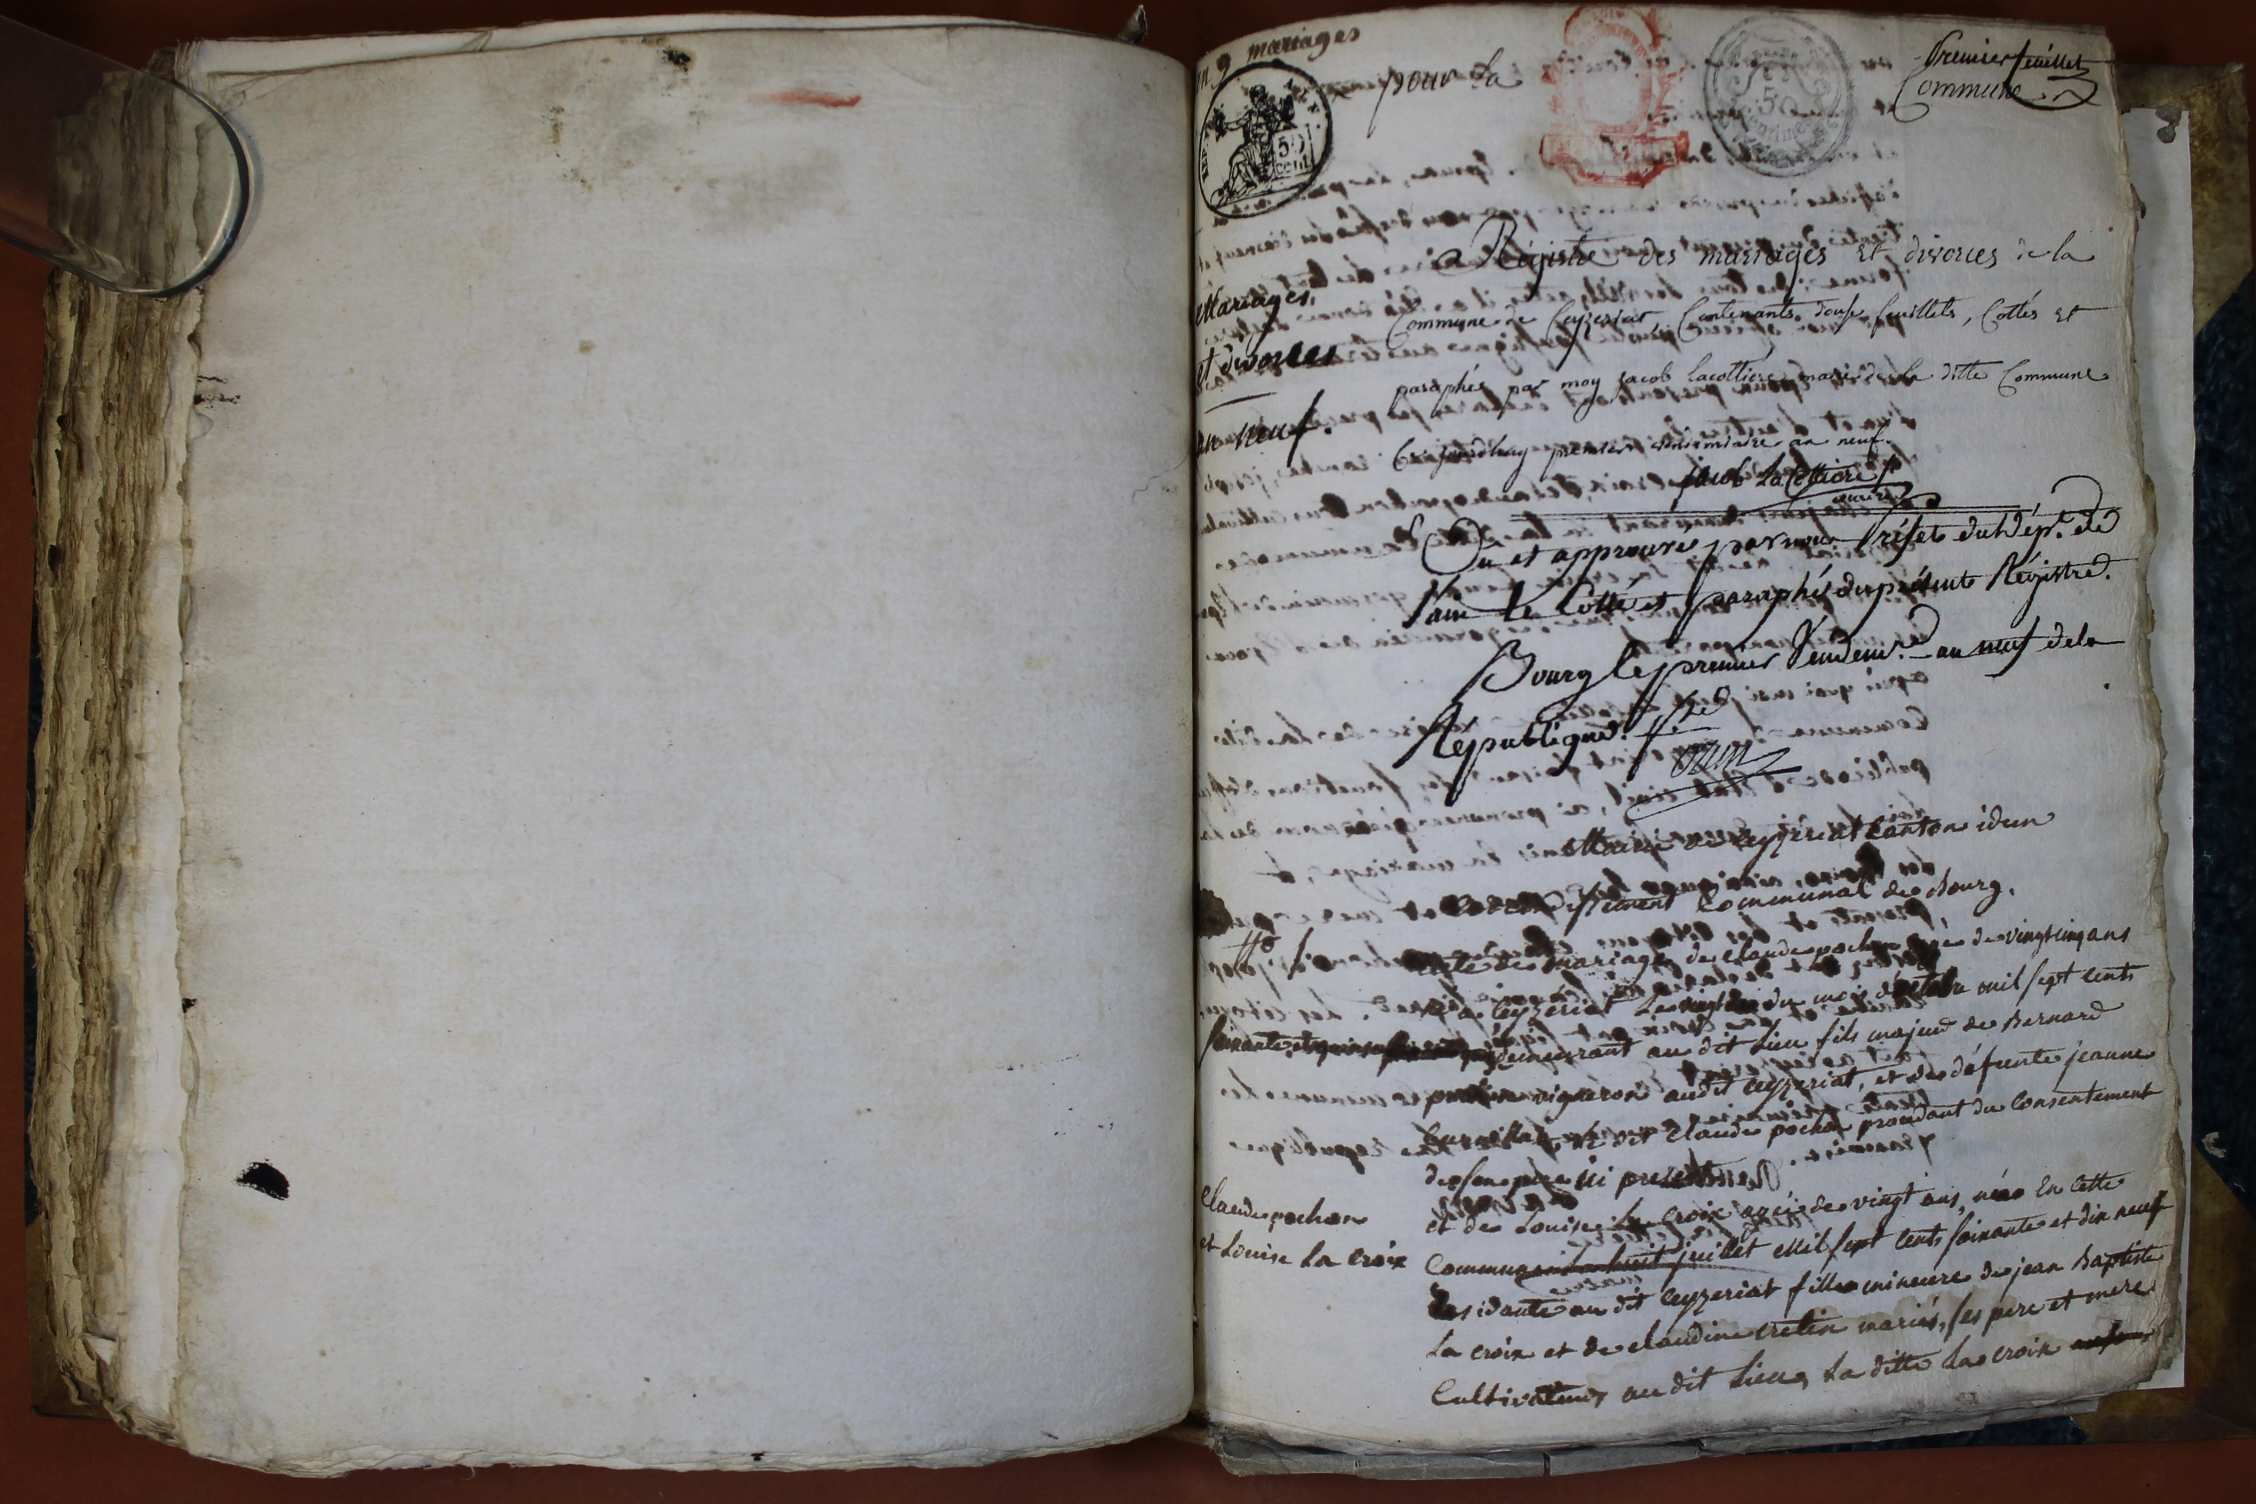 an 9 mariages
pour la
Premier feuillet
Commune
50
cent.
50
centimes
Mariages,
et divorces
an neuf.
Régistre des mariages et divorces de la
Commune de Ceyzeriat, Contenants douse feuillets, Cottés et
paraphés par moy jacob lacottiere maire de la ditte Commune
Ce jourdhuy premier vendemiaire an neuf.
jacob La Cottiere
maire
Vu et approuvé par nous Préfet du Dép.t de
l'ain le Cotté et paraphé du présent Régistre.
Bourg le premier Vendem.re an neuf de la
République.
Mairie de Ceyzeriat Canton idem
arrondissement Communal de Bourg.
acte de mariage de Claude pochon agé de vingt cinq ans
né a Ceyzeriat le du mois d'octobre mil sept cents
soixante et quinse demeurant au dit lieu fils majeur de Bernard
pochon vigneron audit Ceyzeriat, et de défunte jeanne
le dit Claude pochon procédant du Consentement
de son père ici présent
Claude pochon
et Louise La croix
et de Louise La croix agée de vingt ans, née En cette
Commune le huit juillet Mil sept cents soixante et dix neuf
Residante au dit Ceyzeriat fille mineure de jean Baptiste
La croix et de claudine cretin mariés, ses pere et mere
Cultivateurs au dit Lieu, La ditte La croix